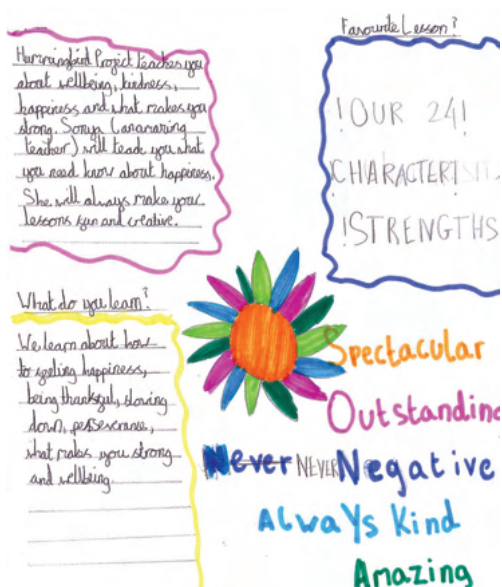 Hummingbird Project teaches you
about wellbeing, kindness,
happiness and what makes you
strong. Sonya (anamazing
teacher) will teach you what
you need know about happiness.
She will always make your
lessons fun and creative.
Favourite Lesson?
!OUR 24!
CHARACTERISITS
!STRENGTHS
What do you learn?
We learn about how
to feeling happiness,
being thankful, slowing
down, perseverance,
what makes you strong
and wellbeing.
Spectacular
Outstanding
Never NEVER Negative
Always Kind
Amazing